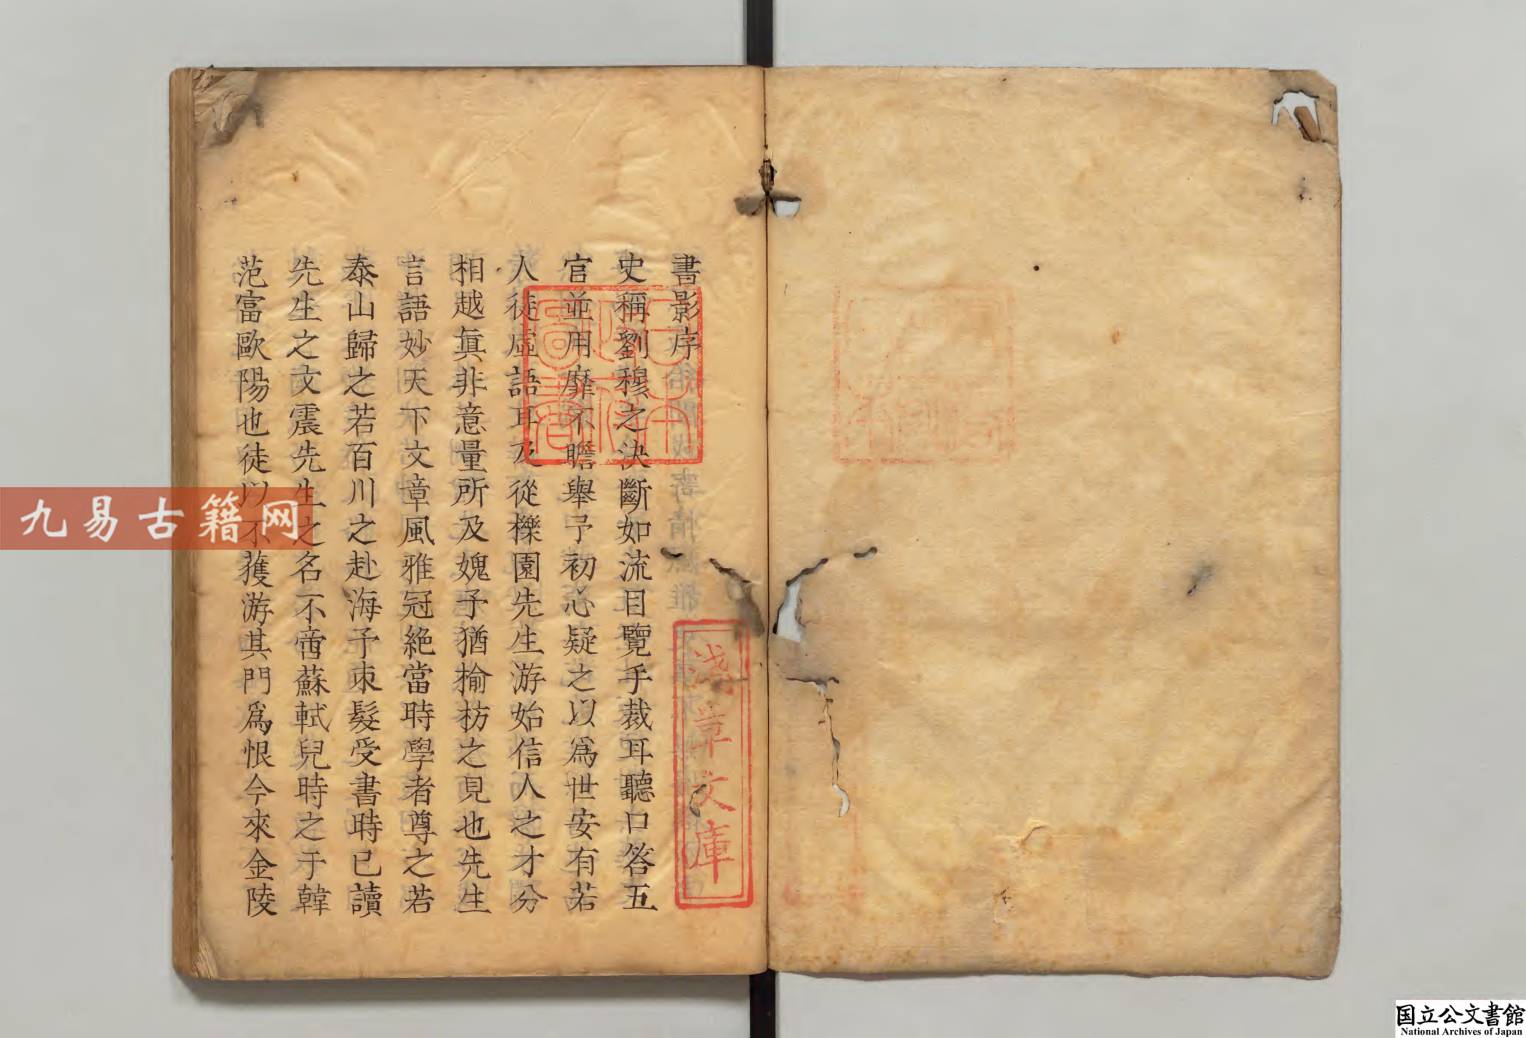 書影序
史稱劉穆之決斷如流目覽手裁耳聽口答五
官並用靡不贍舉予初心疑之以爲世安有若
人徒虛語耳及從櫟園先生游始信人之才分
相越眞非意量所及媿予猶揄枋之見也先生
言語妙天下文章風雅冠絶當時學者尊之若
泰山歸之若百川之赴海予束髮受書時已讀
先生之文震先生之名不啻蘇軾兒時之于韓
范富歐陽也徒以不獲游其門爲恨今來金陵
淺草文庫
九易古籍网
国立公文書館
National Archives of Japan